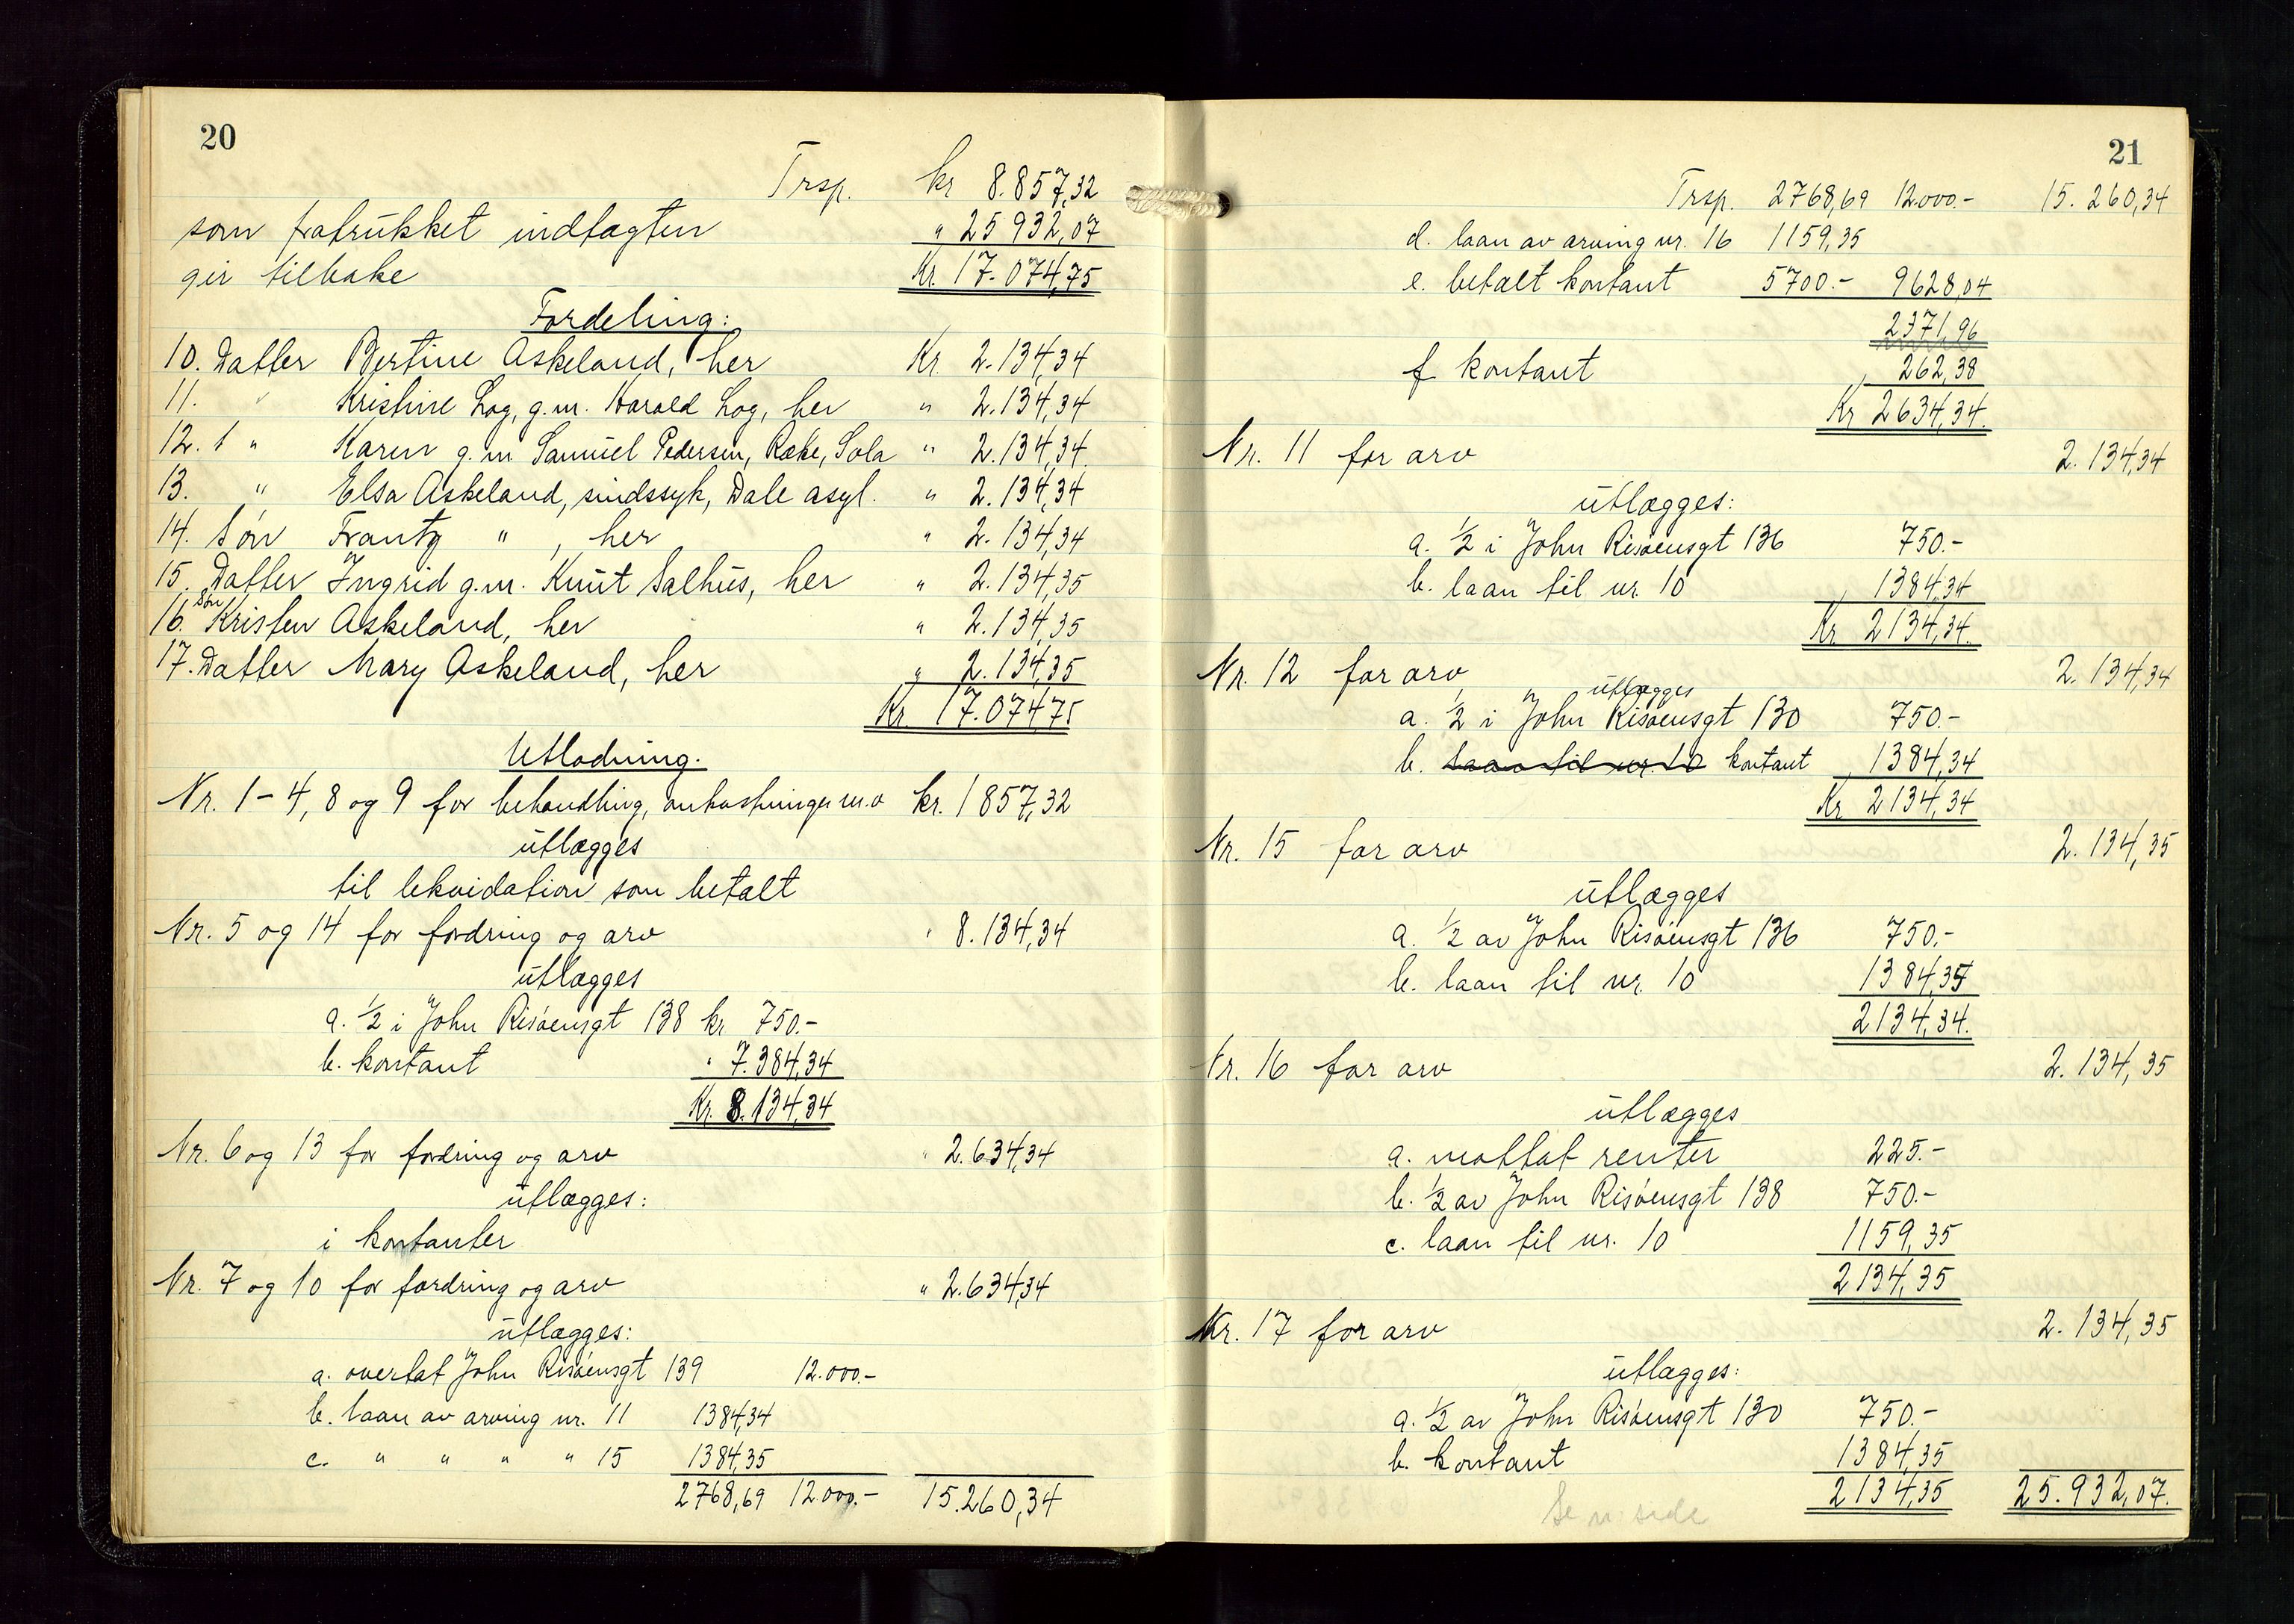 20
Trsp. kr 8.857,32
som fratrukket indtægten " 25932,07
gir tilbake Kr. 17.074,75
Fordeling:
10. Datter Bertine Askeland, her Kr. 2.134,34
11. " Kristine Log, g.m. Harald Log, her " 2.134,34
12. " Karen g.m. Samuel Pedersen, Ræke, Sola " 2.134,34
13. " Elsa Askeland, sindssyk, Dale asyl. " 2.134,34
14. Søn Frantz " , her " 2.134,34
15. Datter Ingrid g.m. Knut Salhus, her " 2.134,35
16. Søn Kristen Askeland, her " 2.134,35
17. Datter Mary Askeland, her " 2.134,35
Kr 17.074,75
Utlodning.
Nr. 1-4, 8 og 9 for behandling, omkostninger m.v kr. 1857,32
utlægges
til likvidation som betalt
Nr. 5 og 14 for fordring og arv " 8.134,34
utlægges
a. 1/2 i John Risøensgt 138 kr 750.-
b. kontant " 7.384,34
Kr. 8.134,34
Nr. 6 og 13 for fordring og arv " 2.634,34
utlægges:
i kontanter
Nr. 7 og 10 for fordring og arv " 2.634,34
utlægges:
a. overtat John Risøensgt 139 12.000.-
b. laan av arving nr. 11 1384,34
c. " " " " 15 1384,35
2768,69 12000.- 15.260,34
21
Trsp. 2768,69 12.000.- 15.260,34
d. laan av arving nr. 16 1159,35
e. betalt kontant 5700.- 9628,04
2371,96
f kontant 262,38
Kr 2634,34.
Nr. 11 for arv 2.134,34
utlægges:
a. 1/2 i John Risøensgt 136 750.-
b. laan til nr. 10 1384,34
Kr 2134,34.
Nr. 12 for arv 2.134,34
utlægges
a. 1/2 i John Risøensgt 130 750.-
b. laan til nr. 10 kontant 1384,34
Kr 2134,34
Nr. 15 for arv 2.134,35
utlægges
a. 1/2 av John Risøensgt 136 750.-
b. laan til nr. 10 1384,35
2134,34.
Nr. 16 for arv 2.134,35
utlægges
a. mottat renter 225.-
b. 1/2 av John Risøensgt 138 750.-
c. laan til nr. 10 1159,35
2134,35
Nr. 17 for arv 2.134,35
utlægges:
a. 1/2 av John Risøensgt 130 750.-
b. kontant 1384,35
2134,35 25.932,07.
Se n. side